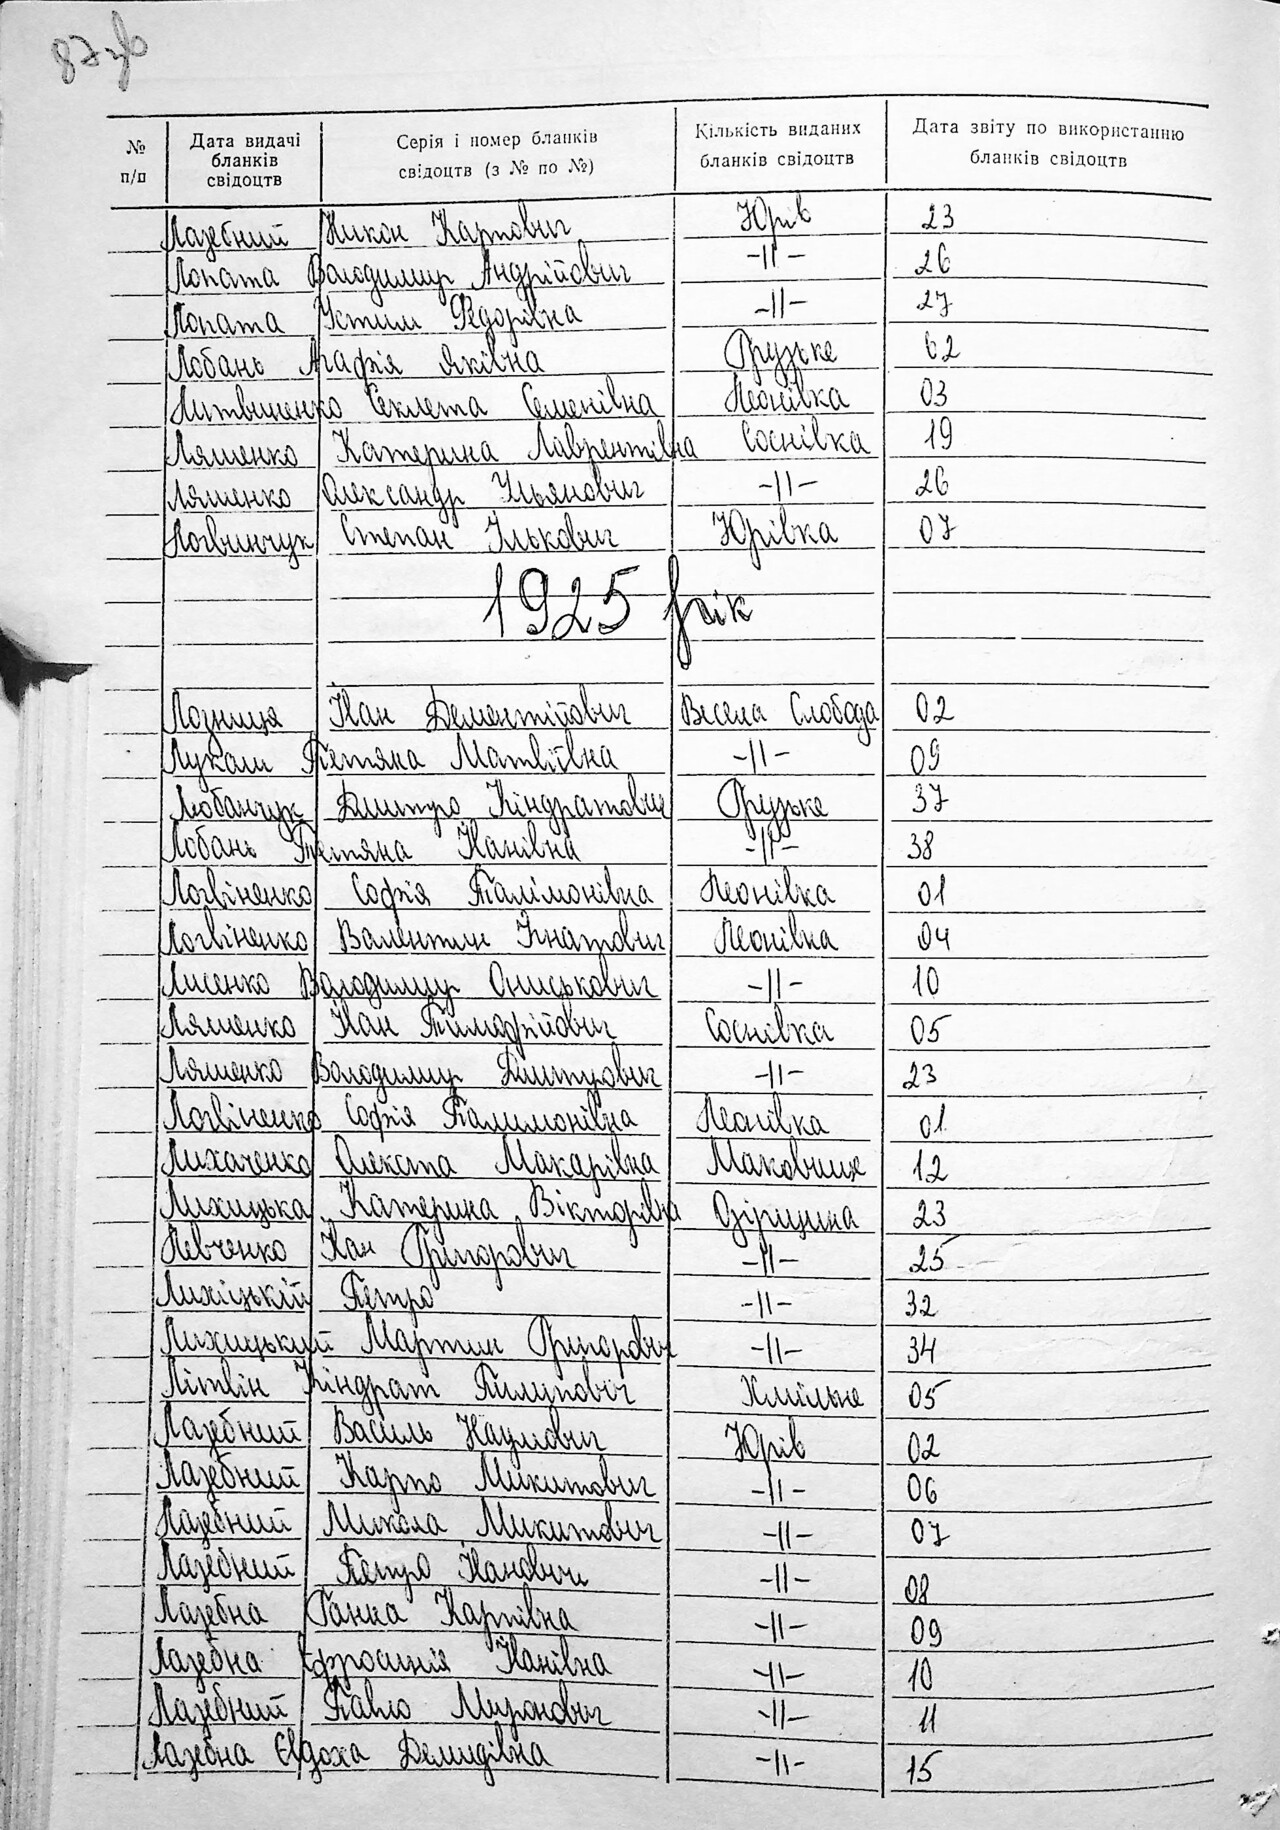 87 зв
№ п/п Дата видачі бланків свідоцтв Серія і номер бланків свідоцтв (з № по №) Кількість виданих бланків свідоцтв Дата звіту по використанню бланків свідоцтв
Лазебний Никон Карпович Юрів 23
Лопата Володимир Андрійович -"- 26
Лопата Устим Федорівна -"- 27
Лобань Агафія Яківна Грузьке 62
Литвиненко Секлета Семенівна Леонівка 03
Ляшенко Катерина Лаврентівна Соснівка 19
Ляшенко Олександр Ульянович -"- 26
Логвинчук Степан Ількович Юрівка 07
1925 рік
Лозниця Іван Дементійович Весела Слобода 02
Лукаш Тетяна Матвіївна -"- 09
Любанчук Дмитро Кіндратович Грузьке 37
Лобань Тетяна Іванівна -"- 38
Логвіненко Софія Палімонівна Леонівка 01
Логвіненко Валентин Ігнатович Леонівка 04
Лисенко Володимир Ониськович -"- 10
Ляшенко Іван Тимофійович Соснівка 05
Ляшенко Володимир Дмитрович -"- 23
Логвіненко Софія Палимонівна Леонівка 01
Лихаченко Олекста Макарівна Маковище 12
Лихицька Катерина Вікторівна Озірщина 23
Левченко Іван Григорович -"- 25
Лихіцькій Петро -"- 32
Лихицький Мартин Григорович -"- 34
Літвін Кіндрат Пилипович Хмільне 05
Лазебний Василь Наумович Юрів 02
Лазебний Карпо Микитович -"- 06
Лазебний Микола Микитович -"- 07
Лазебний Петро Іванович -"- 08
Лазебна Ганна Карпівна -"- 09
Лазебна Єфросинія Іванівна -"- 10
Лазебний Павло Миронович -"- 11
Лазебна Євдоха Демидівна -"- 15